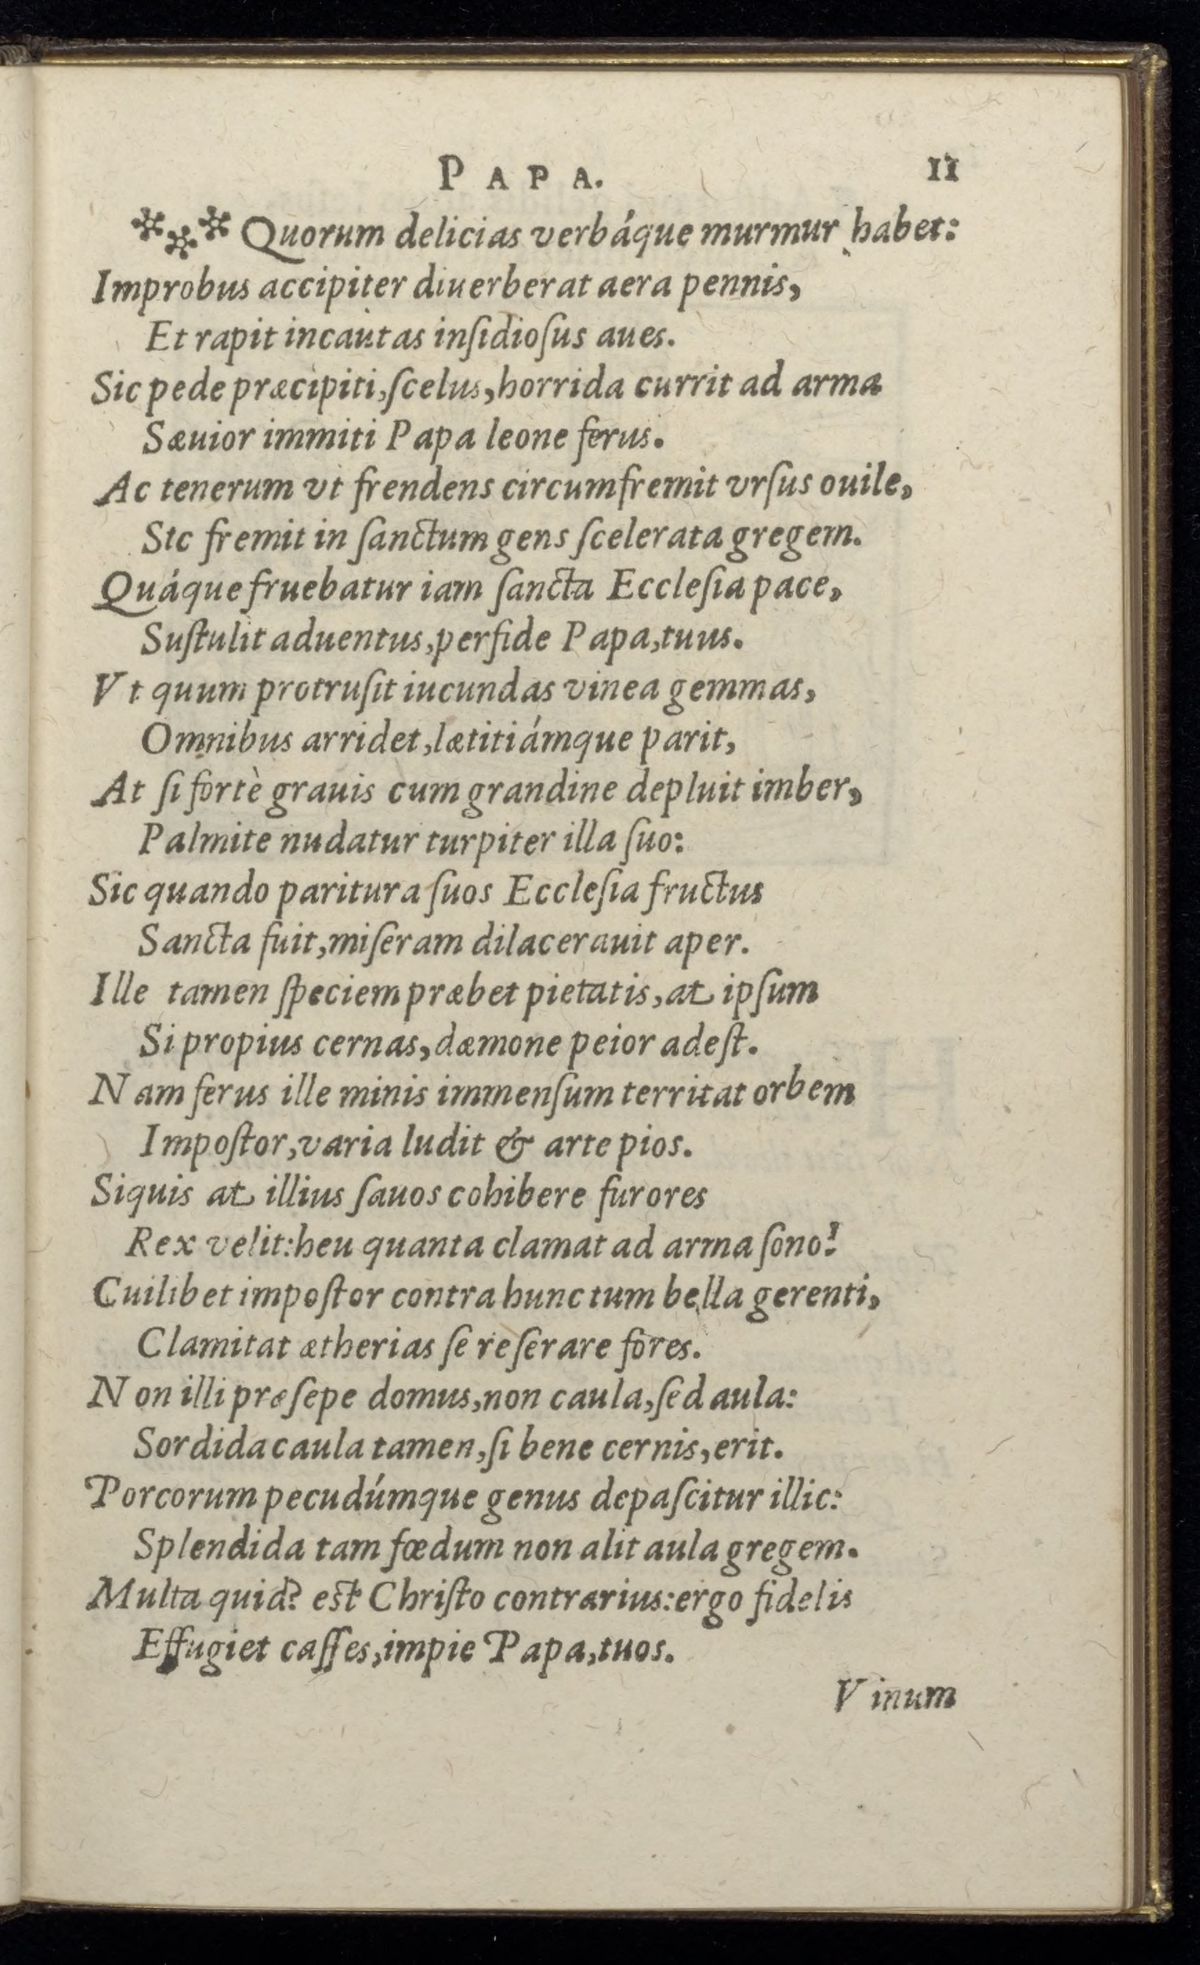 PAPA. 11
Quorum delicias verbáque murmur habet:
Improbus accipiter diuerberat aera pennis,
Et rapit incautas inſidioſus aues.
Sic pede præcipiti, ſcelus, horrida currit ad arma
Sæuior immiti Papa leone ferus.
Ac tenerum vt frendens circumfremit vrſus ouile,
Sic fremit in ſanctum gens ſcelerata gregem.
Quáque fruebatur iam ſancta Eccleſia pace,
Suſtulit aduentus, perfide Papa, tuus.
Vt quum protruſit iucundas vinea gemmas,
Omnibus arridet, lætitiámque parit,
At ſi fortè grauis cum grandine depluit imber,
Palmite nudatur turpiter illa ſuo:
Sic quando paritura ſuos Eccleſia fructus
Sancta fuit, miſeram dilacerauit aper.
Ille tamen ſpeciem præbet pietatis, at ipſum
Si propius cernas, dæmone peior adeſt.
Nam ferus ille minis immenſum territat orbem
Impoſtor, varia ludit & arte pios.
Siquis at illius ſauos cohibere furores
Rex velit: heu quanta clamat ad arma ſono!
Cuilibet impoſtor contra hunc tum bella gerenti,
Clamitat ætherias ſe reſerare fores.
Non illi præſepe domus, non caula, ſed aula:
Sordida caula tamen, ſi bene cernis, erit.
Porcorum pecudúmque genus depaſcitur illic:
Splendida tam fœdum non alit aula gregem.
Multa quid? eſt Chriſto contrarius: ergo fidelis
Effugiet caſſes, impie Papa, tuos.
Vinum